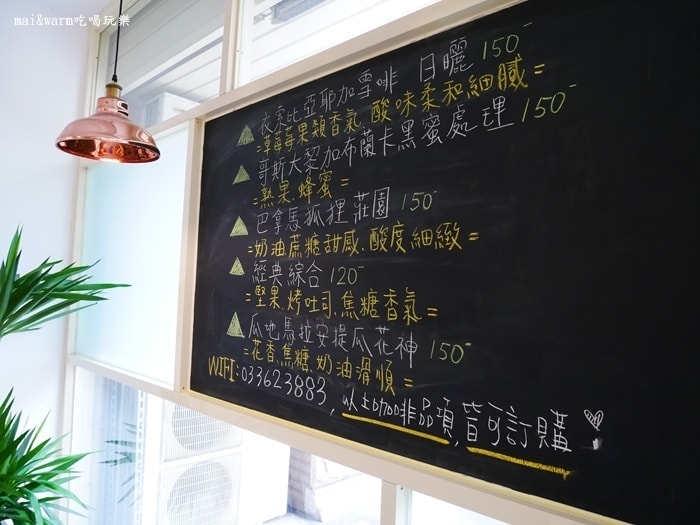 mai&warm吃喝玩樂
衣索比亞耶加雪啡 日曬 150-
=草莓莓果類香氣.酸味柔和細膩=
哥斯大黎加布蘭卡黑蜜處理 150-
=熟果.蜂蜜=
巴拿馬狐狸莊園 150-
=奶油蔗糖甜感.酸度細緻=
經典綜合 120-
=堅果.烤吐司.焦糖香氣=
瓜地馬拉安提瓜花神 150-
=花香.焦糖.奶油滑順=
WIFI:033623883,以上咖啡品項,皆可訂購